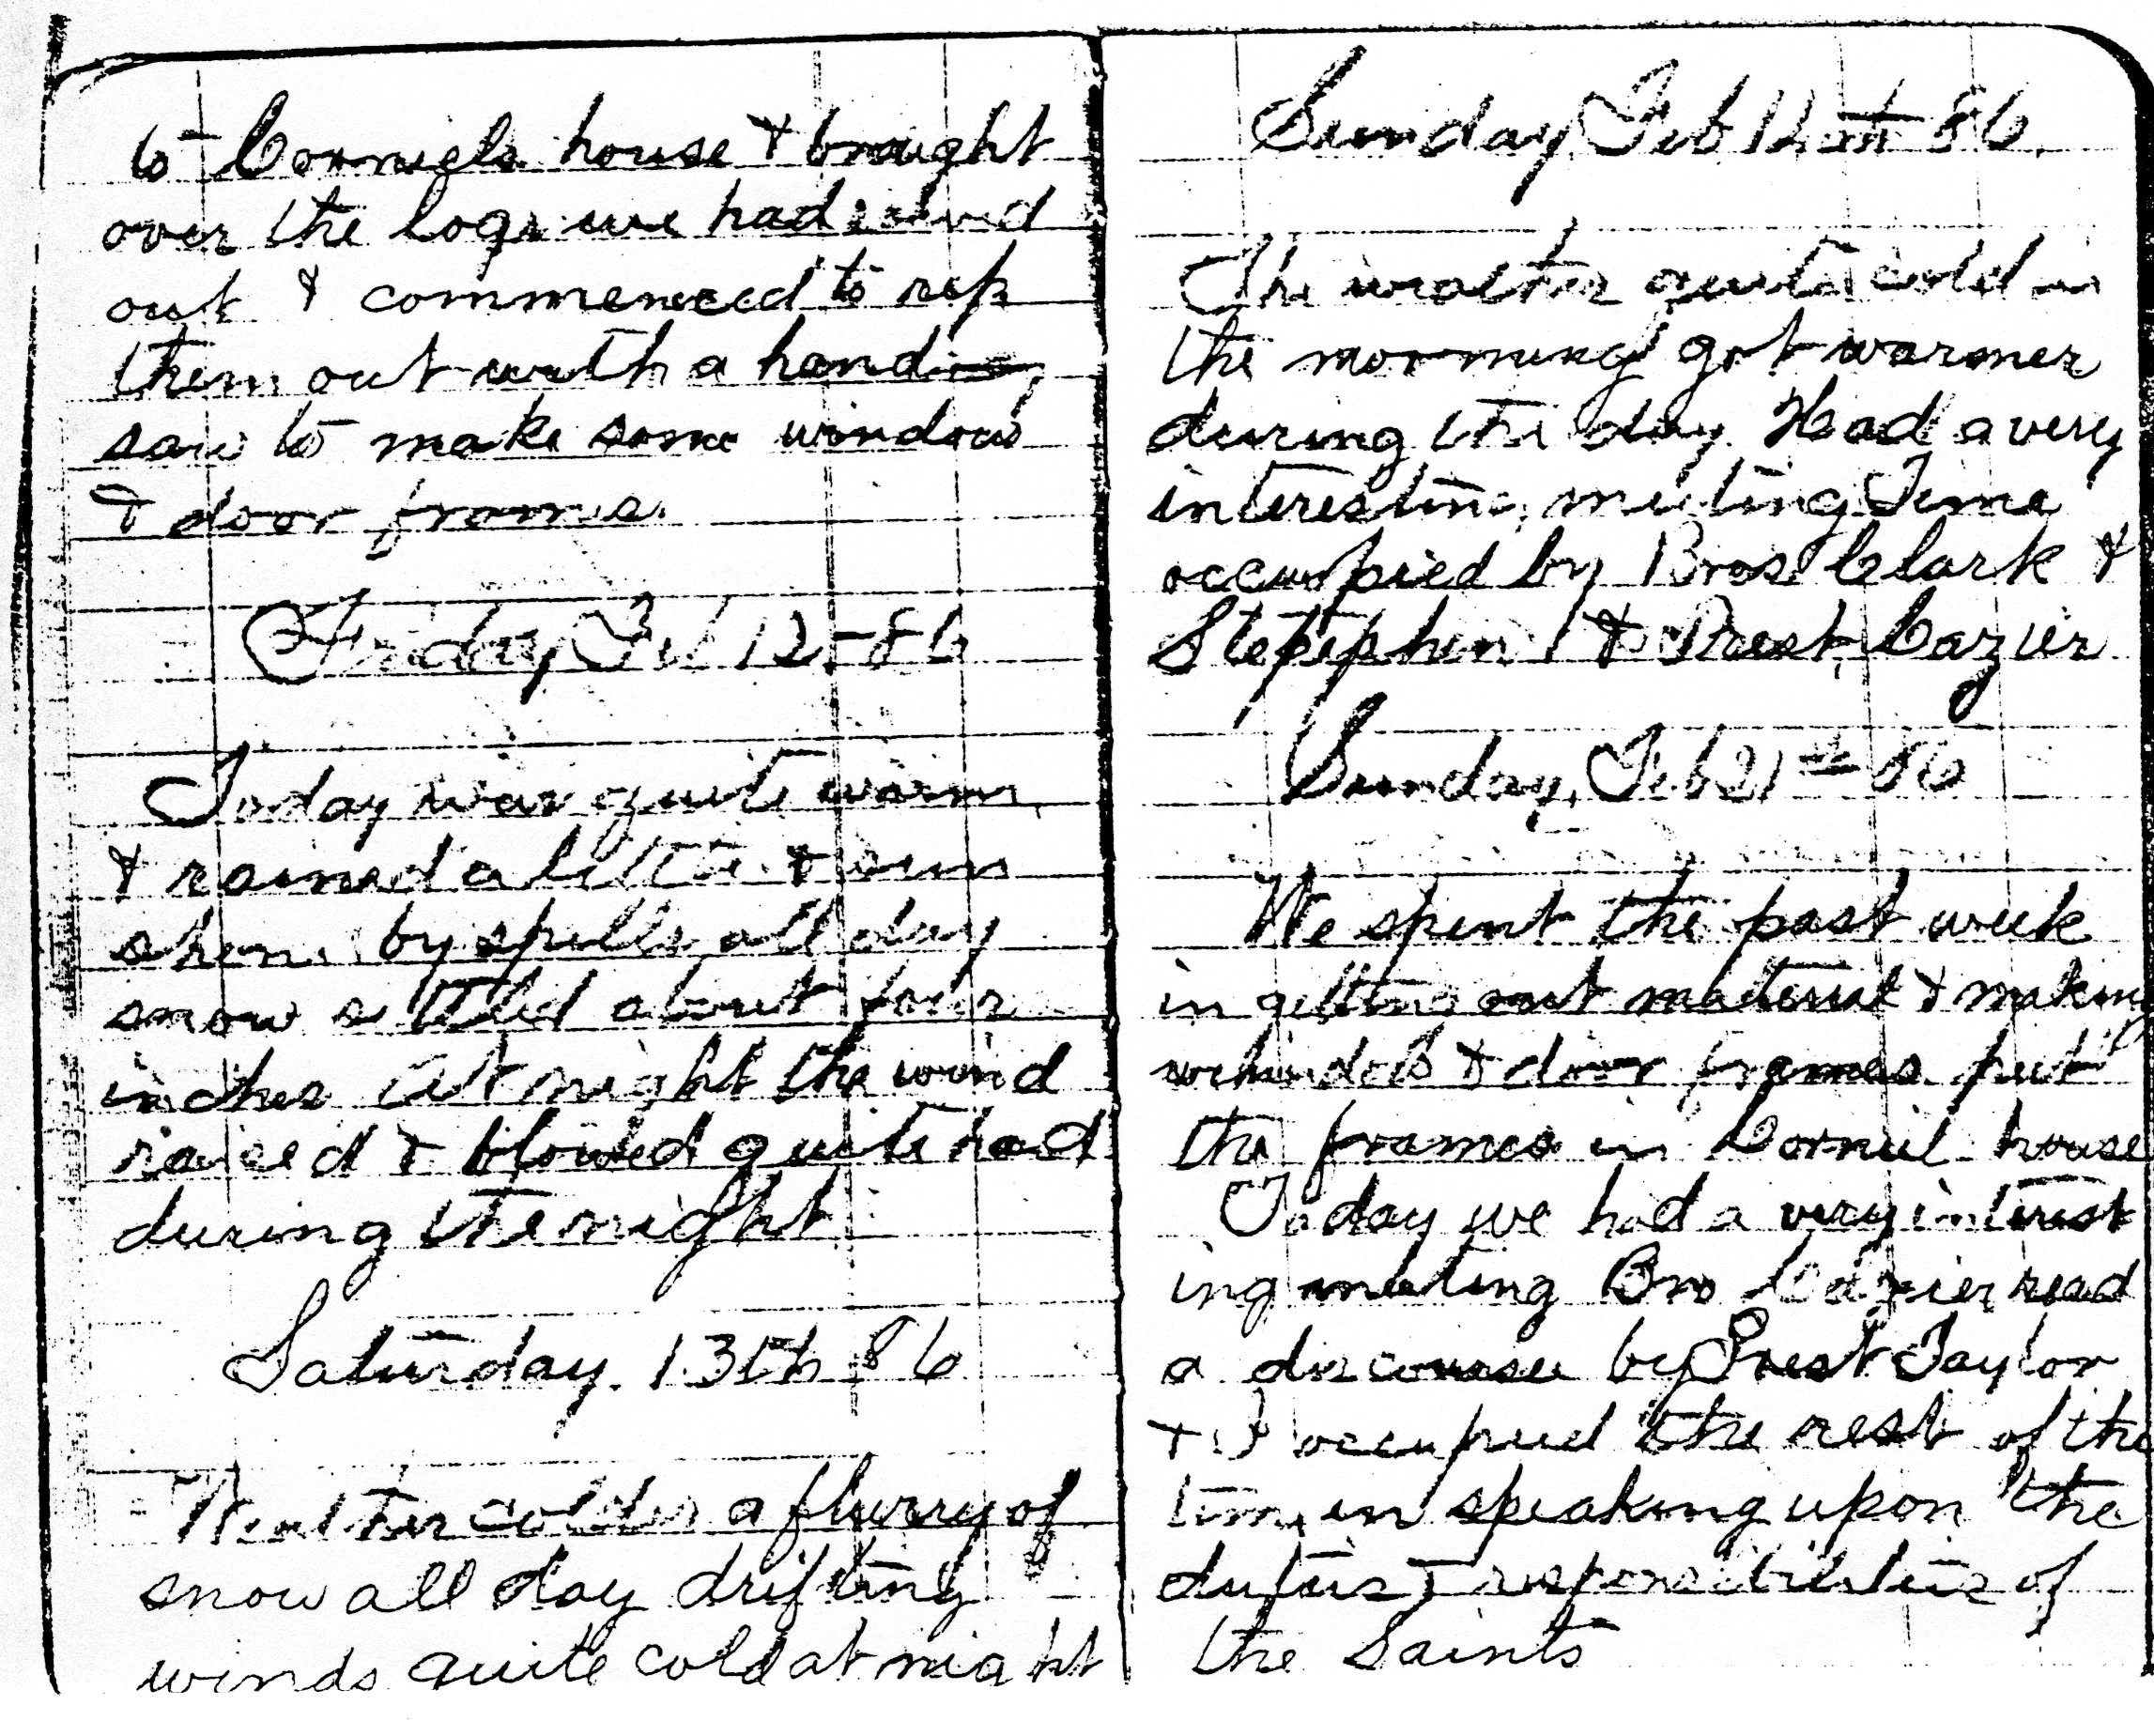 to Corniels house & brought
over the logs we had
out & commenced to rip
them out with a hand
saw to make some window
& door frames.
Friday Feb 12 - 86
Today was quite warm
& rained a little & sun
shone by spells all day
snow settled about four
inches At night the wind
raised & blowed quite had
during the night
Saturday 13th 86
Weather colder a flurry of
snow all day drifting
winds quite cold at night
Sunday Feb 86.
The weather quite cold in
the morning got warmer
during the day Had a very
interesting meeting Time
occupied by Bros Clark &
Stepephen & Prest Cazier
Sunday, Feb 21st - 86
We spent the past week
in getting out material & making
& door frames put
the frames in Corniel house
Today we had a very interest
ing meeting Bro Cazier read
a discourse by Prest Taylor
& I occupied the rest of the
time in speaking upon the
duties & responsibilities of
the Saints